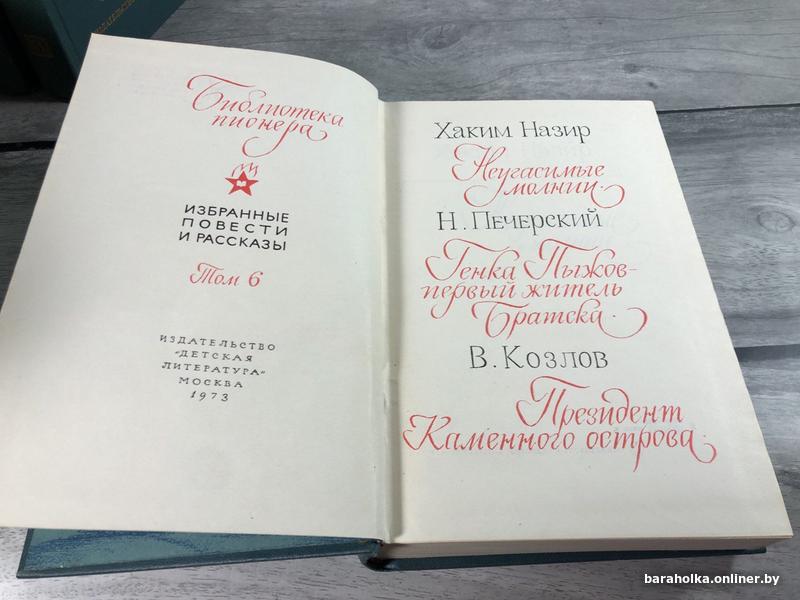 Библиотека
пионера
ИЗБРАННЫЕ
ПОВЕСТИ
И РАССКАЗЫ
Том 6
ИЗДАТЕЛЬСТВО
"ДЕТСКАЯ
ЛИТЕРАТУРА"
МОСКВА
1973
Хаким Назир
Неугасимые
молнии.
Н. Печерский
Генка Пыжов-
первый житель
Братска.
В. Козлов
Президент
Каменного острова.
baraholka.onliner.by